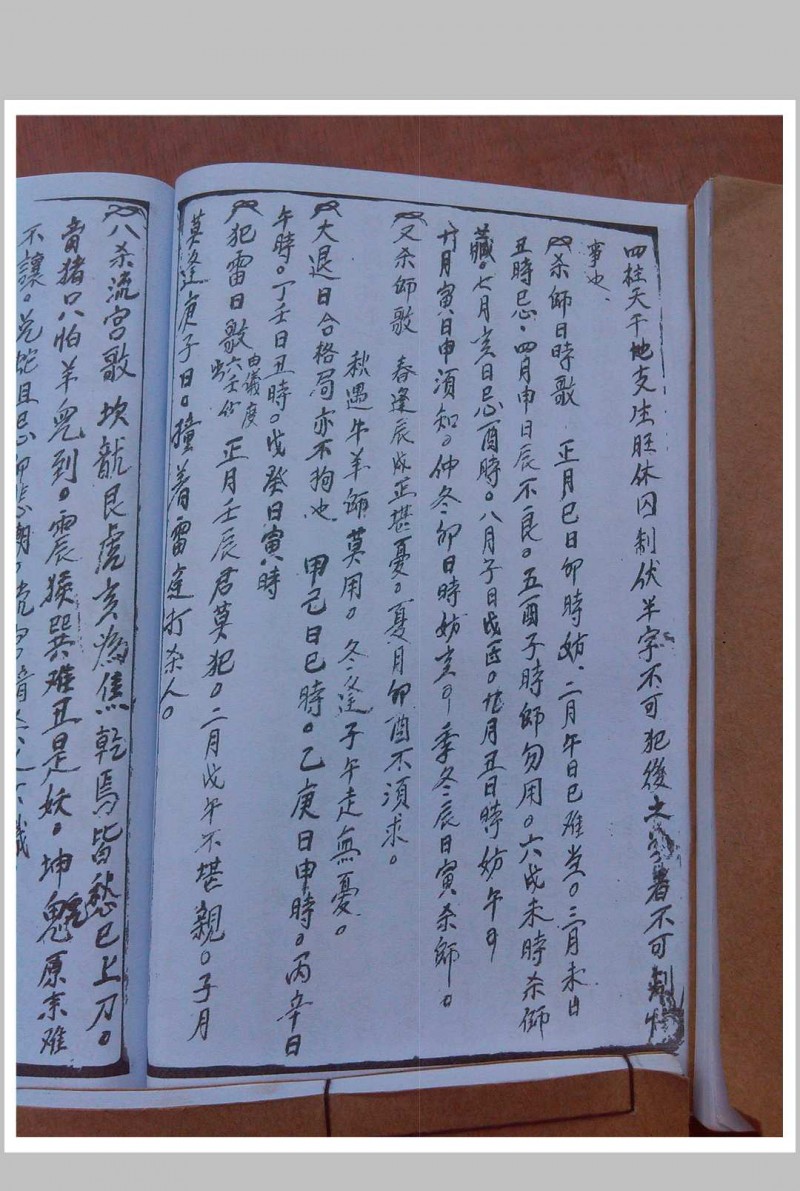 四柱天干地支生旺休囚制伏羊字不可犯後土 著不可
事也、
杀師日時歌　正月巳日卯時妨、二月午日巳难当。三月未日
丑時忌、四月申日辰不良。五酉子時師勿用。六戌未時杀師
藏。七月亥日忌酉時。八月子日戌 。九月丑日時妨午
十月寅日申須知。仲冬卯日時妨亥 季冬辰日寅杀師。
又杀師歌　春逢辰戌正堪憂。夏月卯酉不須求。
秋遇牛羊師莫用。冬逢子午走無憂。
大退日合格局亦不拘也　甲己日巳時。乙庚日申時。丙辛日
午時。丁壬日丑時。戊癸日寅時
犯雷日歌 正月壬辰君莫犯。二月戊午不堪親。子月
莫逢庚子日。撞着雷走打杀人。
八杀流宫歌　坎龍艮虎亥為焦乾馬皆愁巳上刀。
青猪只怕羊兔到。震猴巽难丑是妖。坤 原来难
不讓。兑蛇且忌